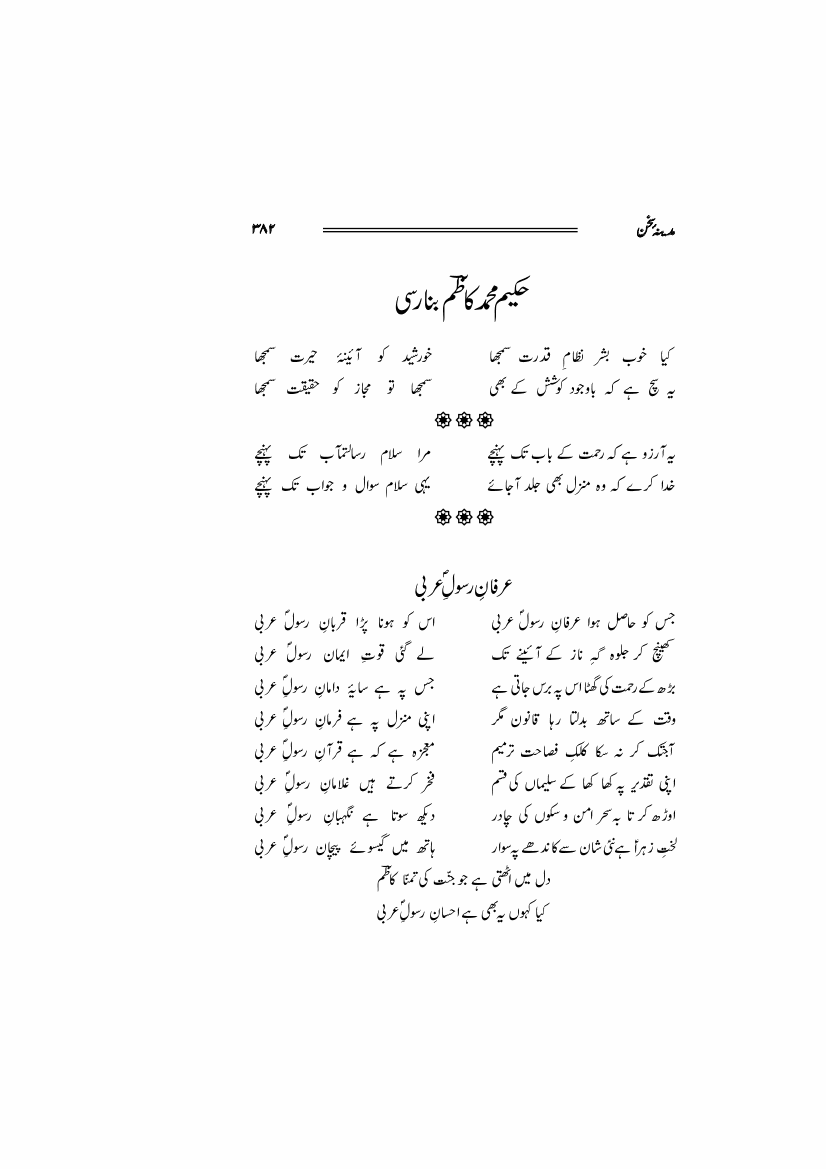 مدینۂ سخن ۳۸۲
حکیم محمد کاظمؔ بنارسی
کیا خوب بشر نظامِ قدرت سمجھا خورشید کو آئینۂ حیرت سمجھا
یہ سچ ہے کہ باوجود کوشش کے بھی سمجھا تو مجاز کو حقیقت سمجھا
یہ آرزو ہے کہ رحمت کے باب تک پہنچے مرا سلام رسالتمآب تک پہنچے
خدا کرے کہ وہ منزل بھی جلد آجائے یہی سلام سوال و جواب تک پہنچے
عرفانِ رسولِؐ عربی
جس کو حاصل ہوا عرفانِ رسولؐ عربی اس کو ہونا پڑا قربانِ رسولؐ عربی
کھینچ کر جلوہ گہِ ناز کے آئینے تک لے گئی قوتِ ایمان رسولؐ عربی
بڑھ کے رحمت کی گھٹا اس پہ برس جاتی ہے جس پہ ہے سایۂ دامانِ رسولِؐ عربی
وقت کے ساتھ بدلتا رہا قانون مگر اپنی منزل پہ ہے فرمانِ رسولِؐ عربی
آجتک کر نہ سکا کلکِ فصاحت ترمیم معجزہ ہے کہ ہے قرآنِ رسولِؐ عربی
اپنی تقدیر پہ کھا کھا کے سلیماں کی قسم فخر کرتے ہیں غلامانِ رسولِؐ عربی
اوڑھ کر تا بہ سحر امن و سکوں کی چادر دیکھ سوتا ہے نگہبانِ رسولِؐ عربی
لختِ زہراؑ ہے نئی شان سے کاندھے پہ سوار ہاتھ میں گیسوئے پیچان رسولِؐ عربی
دل میں اٹھتی ہے جو جنّت کی تمنّا کاظمؔ
کیا کہوں یہ بھی ہے احسانِ رسولِؐ عربی